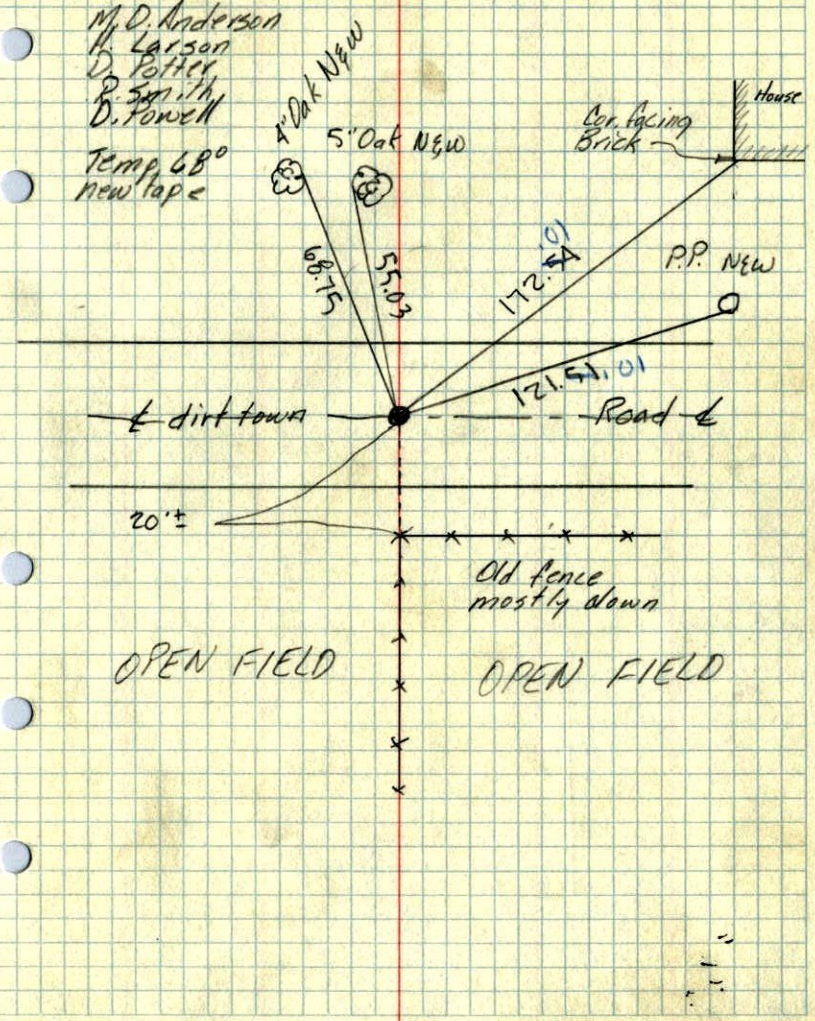 M.D. Anderson
H. Larson
D. Potter
R. Smith
D. Powell
Temp 68°
new tape
4" Oak NEW
5" Oak NEW
House
Cor. facing
Brick
P.P. NEW
68.75
55.03
172.
.01
121.51
.01
℄ dirt town Road ℄
20'±
Old fence
mostly down
OPEN FIELD
OPEN FIELD